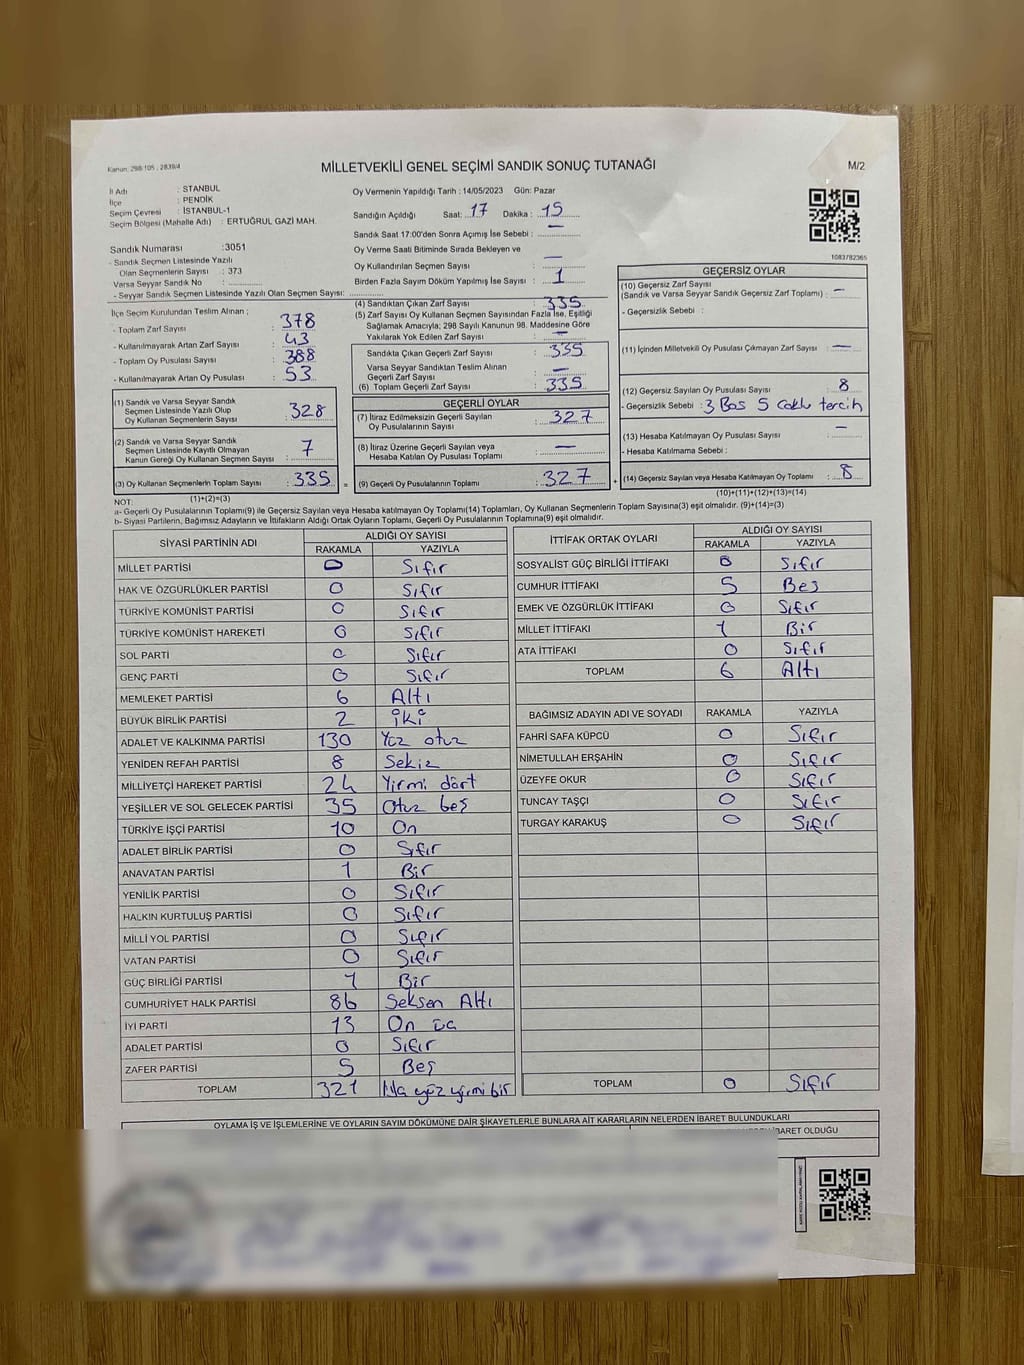 Kanun: 298/105 , 2839/4
MİLLETVEKİLİ GENEL SEÇİMİ SANDIK SONUÇ TUTANAĞI
M/2
İl Adı : STANBUL
İlçe : PENDİK
Seçim Çevresi : İSTANBUL-1
Seçim Bölgesi (Mahalle Adı) : ERTUĞRUL GAZİ MAH.
Sandık Numarası :3051
- Sandık Seçmen Listesinde Yazılı
Olan Seçmenlerin Sayısı : 373
Varsa Seyyar Sandık No :
- Seyyar Sandık Seçmen Listesinde Yazılı Olan Seçmen Sayısı:
Oy Vermenin Yapıldığı Tarih : 14/05/2023 Gün: Pazar
Sandığın Açıldığı Saat: 17 Dakika : 15
Sandık Saat 17:00'den Sonra Açımış İse Sebebi : —
Oy Verme Saati Bitiminde Sırada Bekleyen ve
Oy Kullandırılan Seçmen Sayısı —
Birden Fazla Sayım Döküm Yapılmış İse Sayısı : 1
1083782365
İlçe Seçim Kurulundan Teslim Alınan ;
- Toplam Zarf Sayısı : 378
- Kullanılmayarak Artan Zarf Sayısı : 43
- Toplam Oy Pusulası Sayısı : 388
- Kullanılmayarak Artan Oy Pusulası : 53
(1) Sandık ve Varsa Seyyar Sandık
Seçmen Listesinde Yazılı Olup
Oy Kullanan Seçmenlerin Sayısı : 328
(2) Sandık ve Varsa Seyyar Sandık
Seçmen Listesinde Kayıtlı Olmayan
Kanun Gereği Oy Kullanan Seçmen Sayısı : 7
(3) Oy Kullanan Seçmenlerin Toplam Sayısı : 335
(1)+(2)=(3)
(4) Sandıktan Çıkan Zarf Sayısı : 335
(5) Zarf Sayısı Oy Kullanan Seçmen Sayısından Fazla İse, Eşitliği
Sağlamak Amacıyla; 298 Sayılı Kanunun 98. Maddesine Göre
Yakılarak Yok Edilen Zarf Sayısı : —
Sandıkta Çıkan Geçerli Zarf Sayısı : 335
Varsa Seyyar Sandıktan Teslim Alınan
Geçerli Zarf Sayısı : —
(6) Toplam Geçerli Zarf Sayısı : 335
GEÇERLİ OYLAR
(7) İtiraz Edilmeksizin Geçerli Sayılan
Oy Pusulalarının Sayısı : 327
(8) İtiraz Üzerine Geçerli Sayılan veya
Hesaba Katılan Oy Pusulası Toplamı : —
= (9) Geçerli Oy Pusulalarının Toplamı : 327 +
GEÇERSİZ OYLAR
(10) Geçersiz Zarf Sayısı
(Sandık ve Varsa Seyyar Sandık Geçersiz Zarf Toplamı) : —
- Geçersizlik Sebebi :
(11) İçinden Milletvekili Oy Pusulası Çıkmayan Zarf Sayısı : —
(12) Geçersiz Sayılan Oy Pusulası Sayısı : 8
- Geçersizlik Sebebi : 3 Boş 5 Çoklu tercih
(13) Hesaba Katılmayan Oy Pusulası Sayısı : —
- Hesaba Katılmama Sebebi :
(14) Geçersiz Sayılan veya Hesaba Katılmayan Oy Toplamı : 8
(10)+(11)+(12)+(13)=(14)
NOT:
a- Geçerli Oy Pusulalarının Toplamı(9) ile Geçersiz Sayılan veya Hesaba Katılmayan Oy Toplamı(14) Toplamları, Oy Kullanan Seçmenlerin Toplam Sayısına(3) eşit olmalıdır. (9)+(14)=(3)
b- Siyasi Partilerin, Bağımsız Adayların ve İttifakların Aldığı Ortak Oyların Toplamı, Geçerli Oy Pusulalarının Toplamına(9) eşit olmalıdır.
SİYASİ PARTİNİN ADI ALDIĞI OY SAYISI
RAKAMLA YAZIYLA
MİLLET PARTİSİ 0 Sıfır
HAK VE ÖZGÜRLÜKLER PARTİSİ 0 Sıfır
TÜRKİYE KOMÜNİST PARTİSİ 0 Sıfır
TÜRKİYE KOMÜNİST HAREKETİ 0 Sıfır
SOL PARTİ 0 Sıfır
GENÇ PARTİ 0 Sıfır
MEMLEKET PARTİSİ 6 Altı
BÜYÜK BİRLİK PARTİSİ 2 iki
ADALET VE KALKINMA PARTİSİ 130 Yüz otuz
YENİDEN REFAH PARTİSİ 8 Sekiz
MİLLİYETÇİ HAREKET PARTİSİ 24 Yirmi dört
YEŞİLLER VE SOL GELECEK PARTİSİ 35 Otuz beş
TÜRKİYE İŞÇİ PARTİSİ 10 On
ADALET BİRLİK PARTİSİ 0 Sıfır
ANAVATAN PARTİSİ 1 Bir
YENİLİK PARTİSİ 0 Sıfır
HALKIN KURTULUŞ PARTİSİ 0 Sıfır
MİLLİ YOL PARTİSİ 0 Sıfır
VATAN PARTİSİ 0 Sıfır
GÜÇ BİRLİĞİ PARTİSİ 1 Bir
CUMHURİYET HALK PARTİSİ 86 Seksen Altı
İYİ PARTİ 13 On üç
ADALET PARTİSİ 0 Sıfır
ZAFER PARTİSİ 5 Beş
TOPLAM 321 yüz yirmi bir
İTTİFAK ORTAK OYLARI ALDIĞI OY SAYISI
RAKAMLA YAZIYLA
SOSYALİST GÜÇ BİRLİĞİ İTTİFAKI 0 Sıfır
CUMHUR İTTİFAKI 5 Beş
EMEK VE ÖZGÜRLÜK İTTİFAKI 0 Sıfır
MİLLET İTTİFAKI 1 Bir
ATA İTTİFAKI 0 Sıfır
TOPLAM 6 Altı
BAĞIMSIZ ADAYIN ADI VE SOYADI RAKAMLA YAZIYLA
FAHRİ SAFA KÜPCÜ 0 Sıfır
NİMETULLAH ERŞAHİN 0 Sıfır
ÜZEYFE OKUR 0 Sıfır
TUNCAY TAŞÇI 0 Sıfır
TURGAY KARAKUŞ 0 Sıfır
TOPLAM 0 Sıfır
OYLAMA İŞ VE İŞLEMLERİNE VE OYLARIN SAYIM DÖKÜMÜNE DAİR ŞİKAYETLERLE BUNLARA AİT KARARLARIN NELERDEN İBARET BULUNDUKLARI
İBARET OLDUĞU